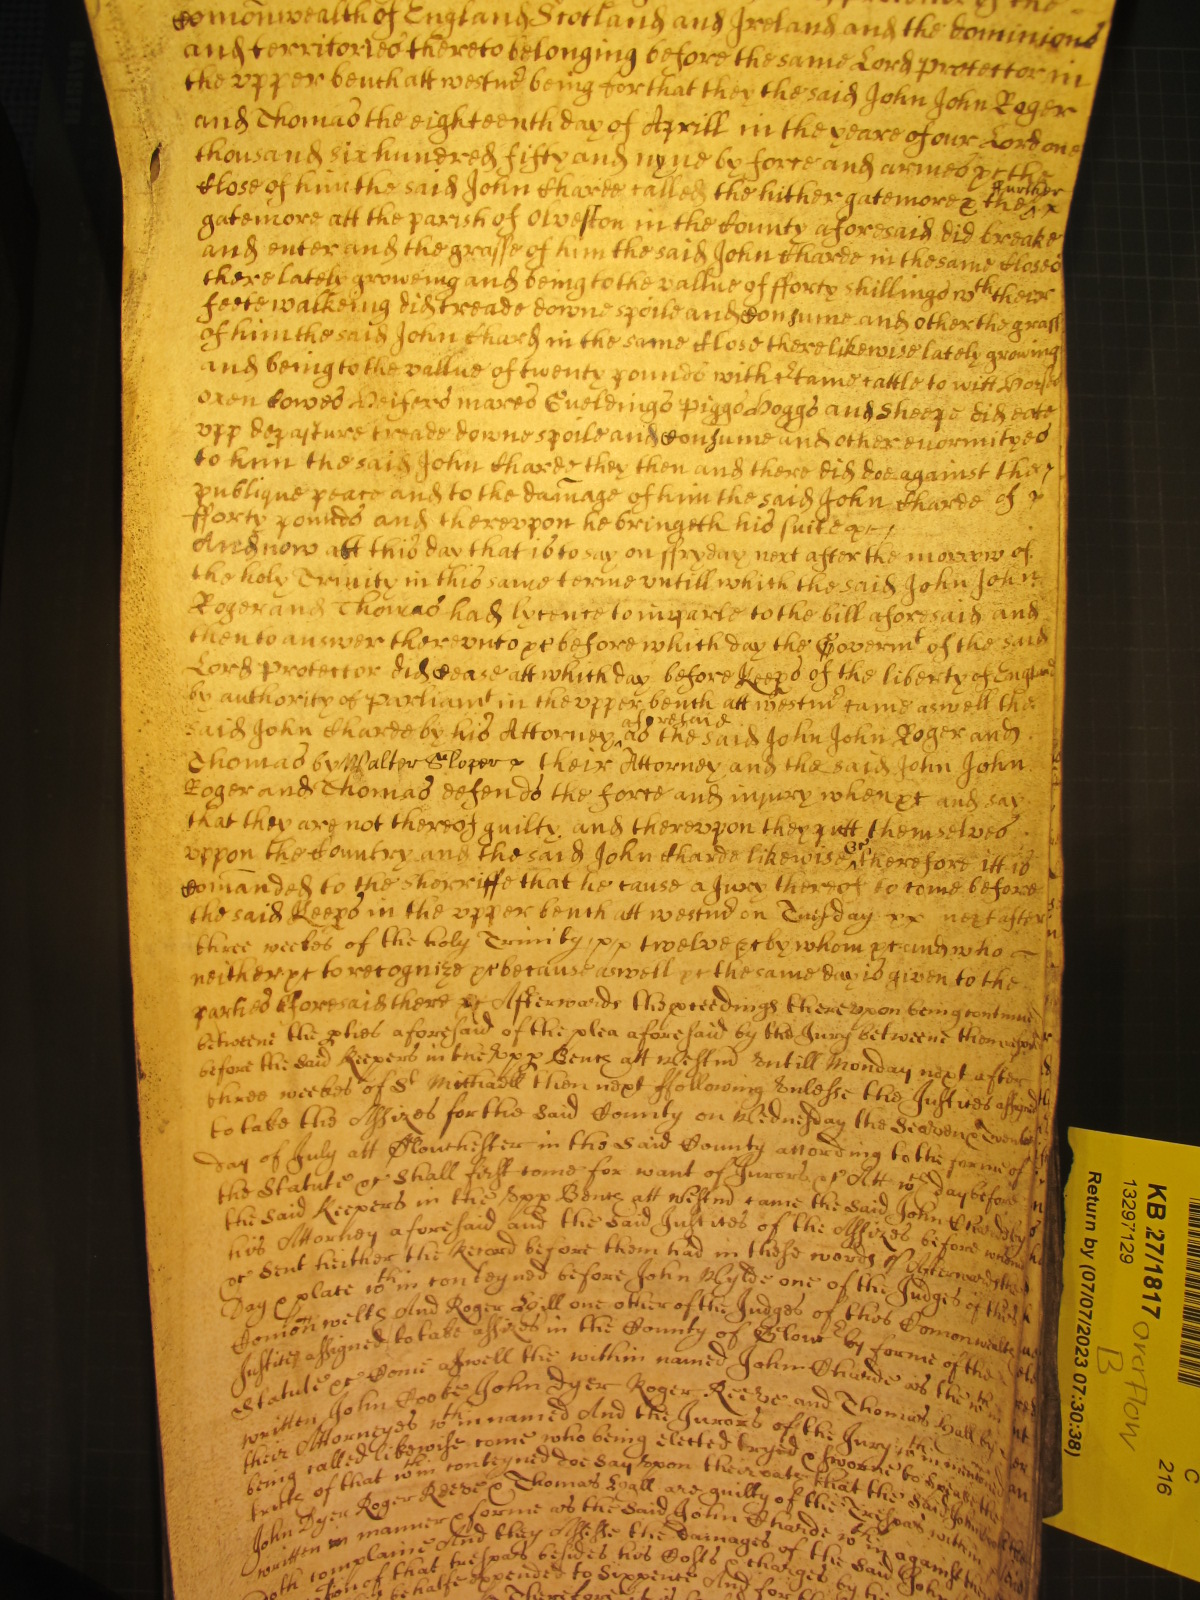 Comonwealth of England Scotland and Ireland and the dominions
and territories thereto belonging before the same Lord Protector in
the upper bench att westmr being for that they the said John John Roger
and Thomas the eighteenth day of Aprill in the yeare of our Lord one
thousand six hundred fifty and nyne by force and armes &c the
Close of him the said John Charde called the hither gatemore & the further
gatemore att the parish of Olveston in the County aforesaid did breake
and enter and the grasse of him the said John Charde in the same Closes
there lately groweing and being to the vallue of fforty shillings wth their
feete walkeing did treade downe spoile and Consume and other the grass
of him the said John Chard in the same Close there likewise lately growing
and being to the vallue of twenty pounds with Ctame cattle to witt horses
oxen Cowes Heifers mares Gueldings Piggs Hoggs and Sheepe did eate
upp depasture treade downe spoile and Consume and other enormityes
to him the said John Charde they then and there did doe against the
publique peace and to the damage of him the said John Charde of
fforty pounds and thereupon he bringeth his suite &c
And now att this day that is to say on ffryday next after the morrow of
the holy Trinity in this same terme untill which the said John John
Roger and Thomas had lycence to imparle to the bill aforesaid and
then to answer thereunto &c before which day the Governmt of the said
Lord Protector did Cease att which day before Keeps of the liberty of England
by authority of parliamt in the upper bench att westmr came aswell the
said John Charde by his Attorney aforesaid as the said John John Roger and
Thomas by Walter Sloper their Attorney and the said John John
Roger and Thomas defends the force and injury when &c and say
that they are not thereof guilty and thereupon they putt themselves
uppon the Country and the said John Charde likewise &c Therefore itt is
Comanded to the Sherriffe that he cause a Jury thereof to come before
the said Keeps in the upper bench att westm on Tuesday next after
three weekes of the holy Trinity twelve &c by whom &c and who
neither &c to recognize &c because aswell &c the same day is given to the
parties aforesaid there &c Afterwards the pceedings thereupon being continued
betweene the pties aforesaid of the plea aforesaid by the Jury betweene them
before the said Keepers in the Upp Bench att Westm Untill Monday next after
three weekes of St Michaell then next ffollowing Unlesse the Justices assigned
to take the Assizes for the said County on Wednesday the Seaven & Twentieth
day of July att Gloucester in the said County according to the forme of
the Statute &c Shall first come for want of Jurors &c Att wch day before
the said Keepers in the Upp Bench att Westm came the said John Charde by
his Attorney aforesaid and the said Justices of the Assizes before whom
&c Sent heither the Record before them had in these words Afterwards the
day & place wthin conteyned before John Wylde one of the Judges of this
Comonwelth And Roger Hill one other of the Judges of this Comonwealth
Justices assigned to take assizes in the County of Glouc by forme of the
Statute &c Come aswell the within named John Charde as the wthin
written John Cooke John Dyer Roger Reeve and Thomas Hall by
their Attorneyes wthin named And the Jurors of the Jury wthin mentioned
being called likewise come who being elected tryed & sworne to Speake the
truth of that wthin conteyned doe Say upon their oath that the said John
John Dyer Roger Reeve & Thomas Hall are guilty of the Trespas within
written in manner & forme as the said John Charde wthin against them
doth complaine And they Assesse the damages of the said John
of that trespas besides his Costs & charges by him
behalfe expended to Sixpence And for
Therefore
KB 27/1817
Overflow
13297129
B
Return by (07/07/2023 07:30:38)
C
216